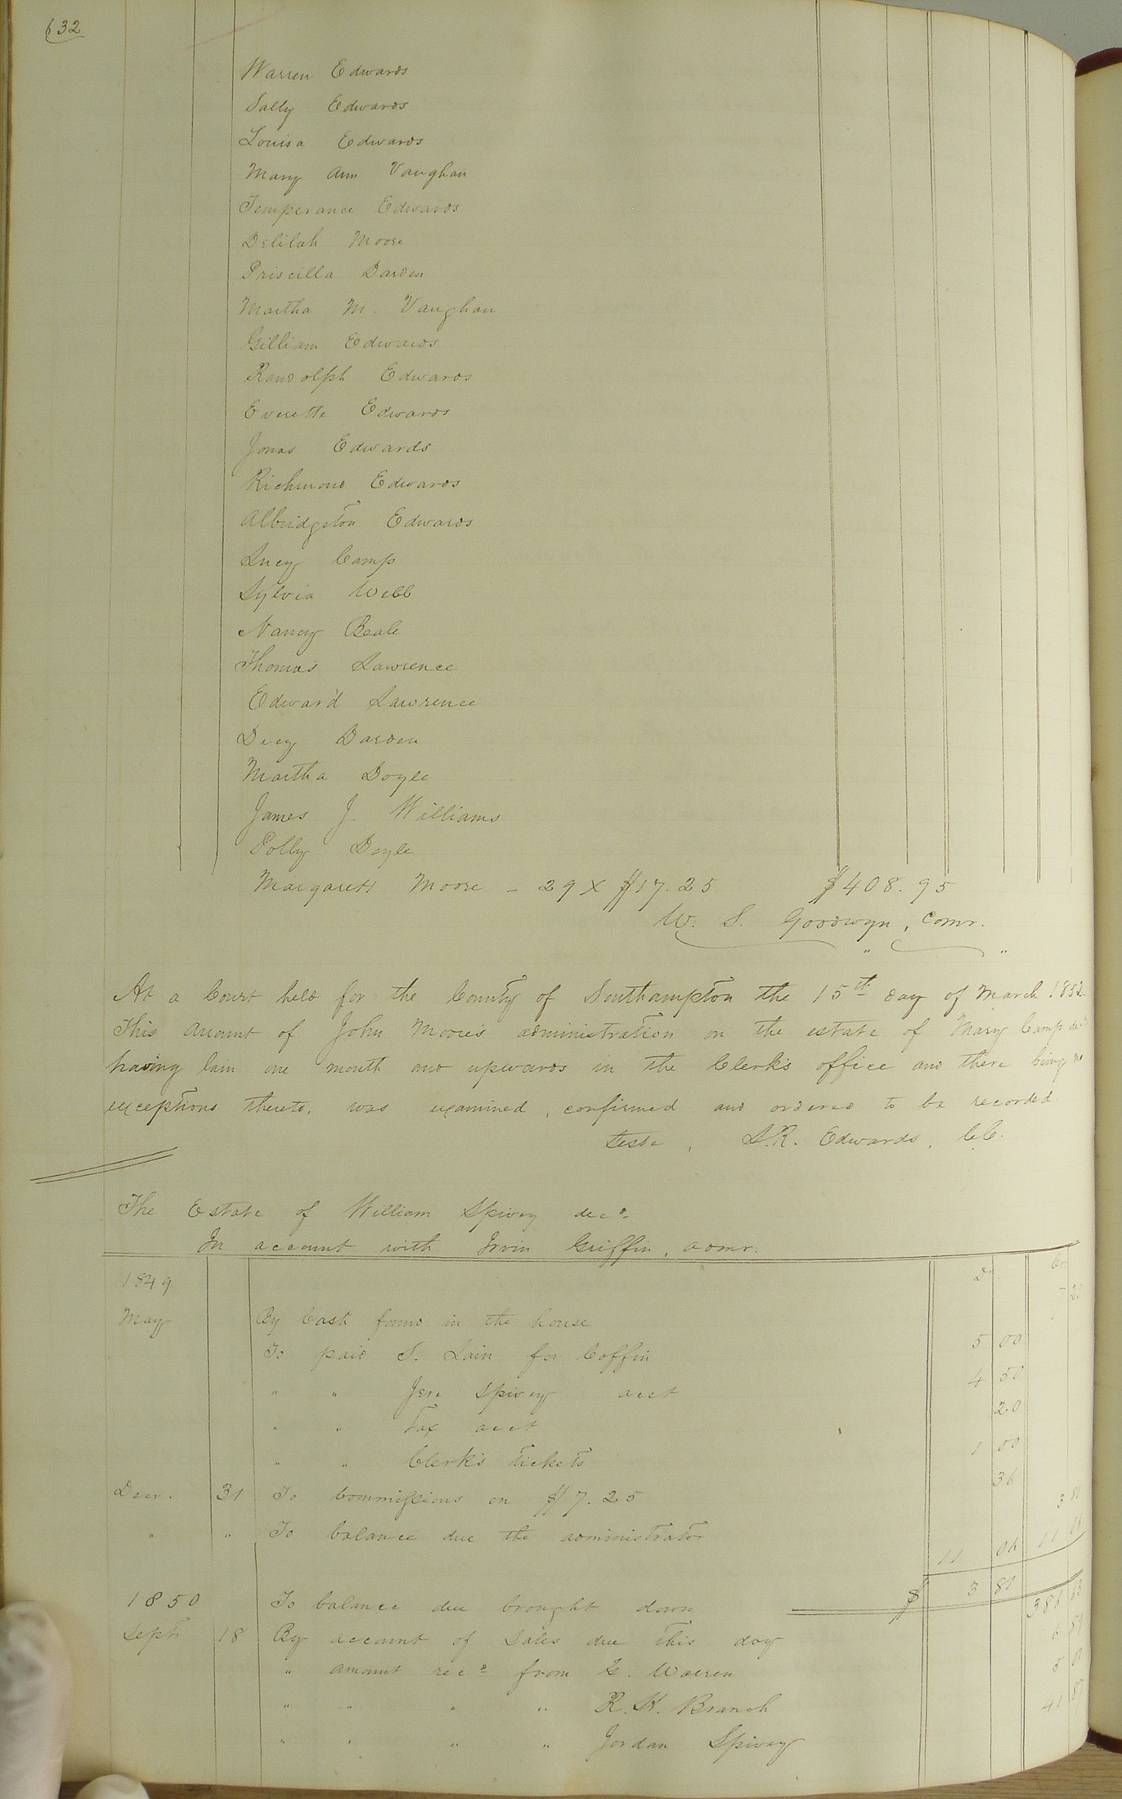 632
Warren Edwards
Sally Edwards
Louisa Edwards
Mary Ann Vaughan
Temperance Edwards
Delilah Moore
Priscilla Darden
Martha M. Vaughan
Gilliam Edwards
Randolph Edwards
Everette Edwards
Jonas Edwards
Richmond Edwards
Albridgeton Edwards
Lucy Camp
Sylvia Webb
Nancy Beale
Thomas Lawrence
Edward Lawrence
Dicy Barden
Martha Doyle
James J. Williams
Polly Doyle
Margarett Moore - 29 X $17.25 $408.95
W. S. Goodwyn, Comr.
At a Court held for the County of Southampton the 15th day of March 1852
This amount of John Moore's administration on the estate of Mary Camp decd
having lain one month and upwards in the Clerk's office and there being no
exceptions thereto, was examined, confirmed and ordered to be recorded
Teste, L.R. Edwards, C.C.
The Estate of William Spivey decd.
In account with Irvin Griffin, admr.
1849 Dr Cr
May By Cash found in the house 7 25
To paid S. Lain for Coffin 5 00
" " Jere Spivey acct 4 50
" " Tax acct 20
" " Clerk's tickets 1 00
Decr. 31 To Commissions on $7.25 36
" " To balance due the administrator 3 81
11 06 11 06
1850 To balance due brought down $ 3 81
Sept 18 By account of Sales due this day 386
" amount recd from E. Warren
" " " " R. H. Branch
" " " " Jordan Spivey 41